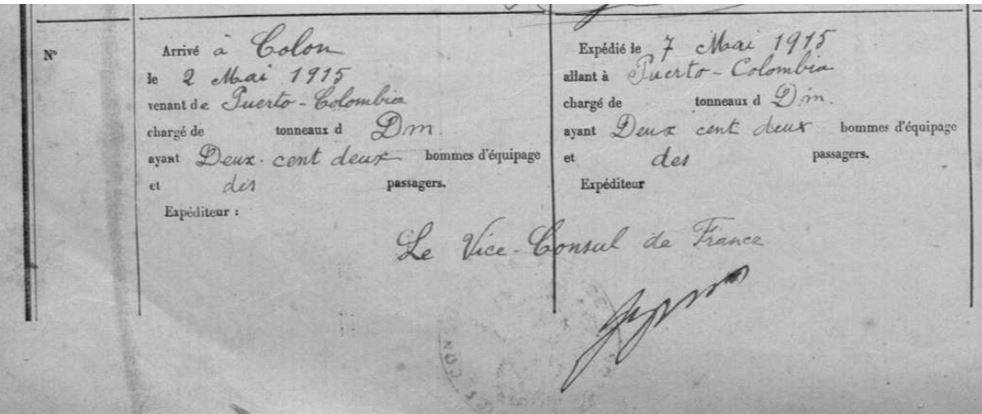 N°
Arrivé à Colon
le 2 Mai 1915
venant de Puerto-Colombia
chargé de tonneaux d Dm.
ayant Deux-cent deux hommes d'équipage
et des passagers.
Expéditeur :
Expédié le 7 Mai 1915
allant à Puerto-Colombia
chargé de tonneaux d Dm.
ayant Deux cent deux hommes d'équipage
et des passagers.
Expéditeur
Le Vice-Consul de France